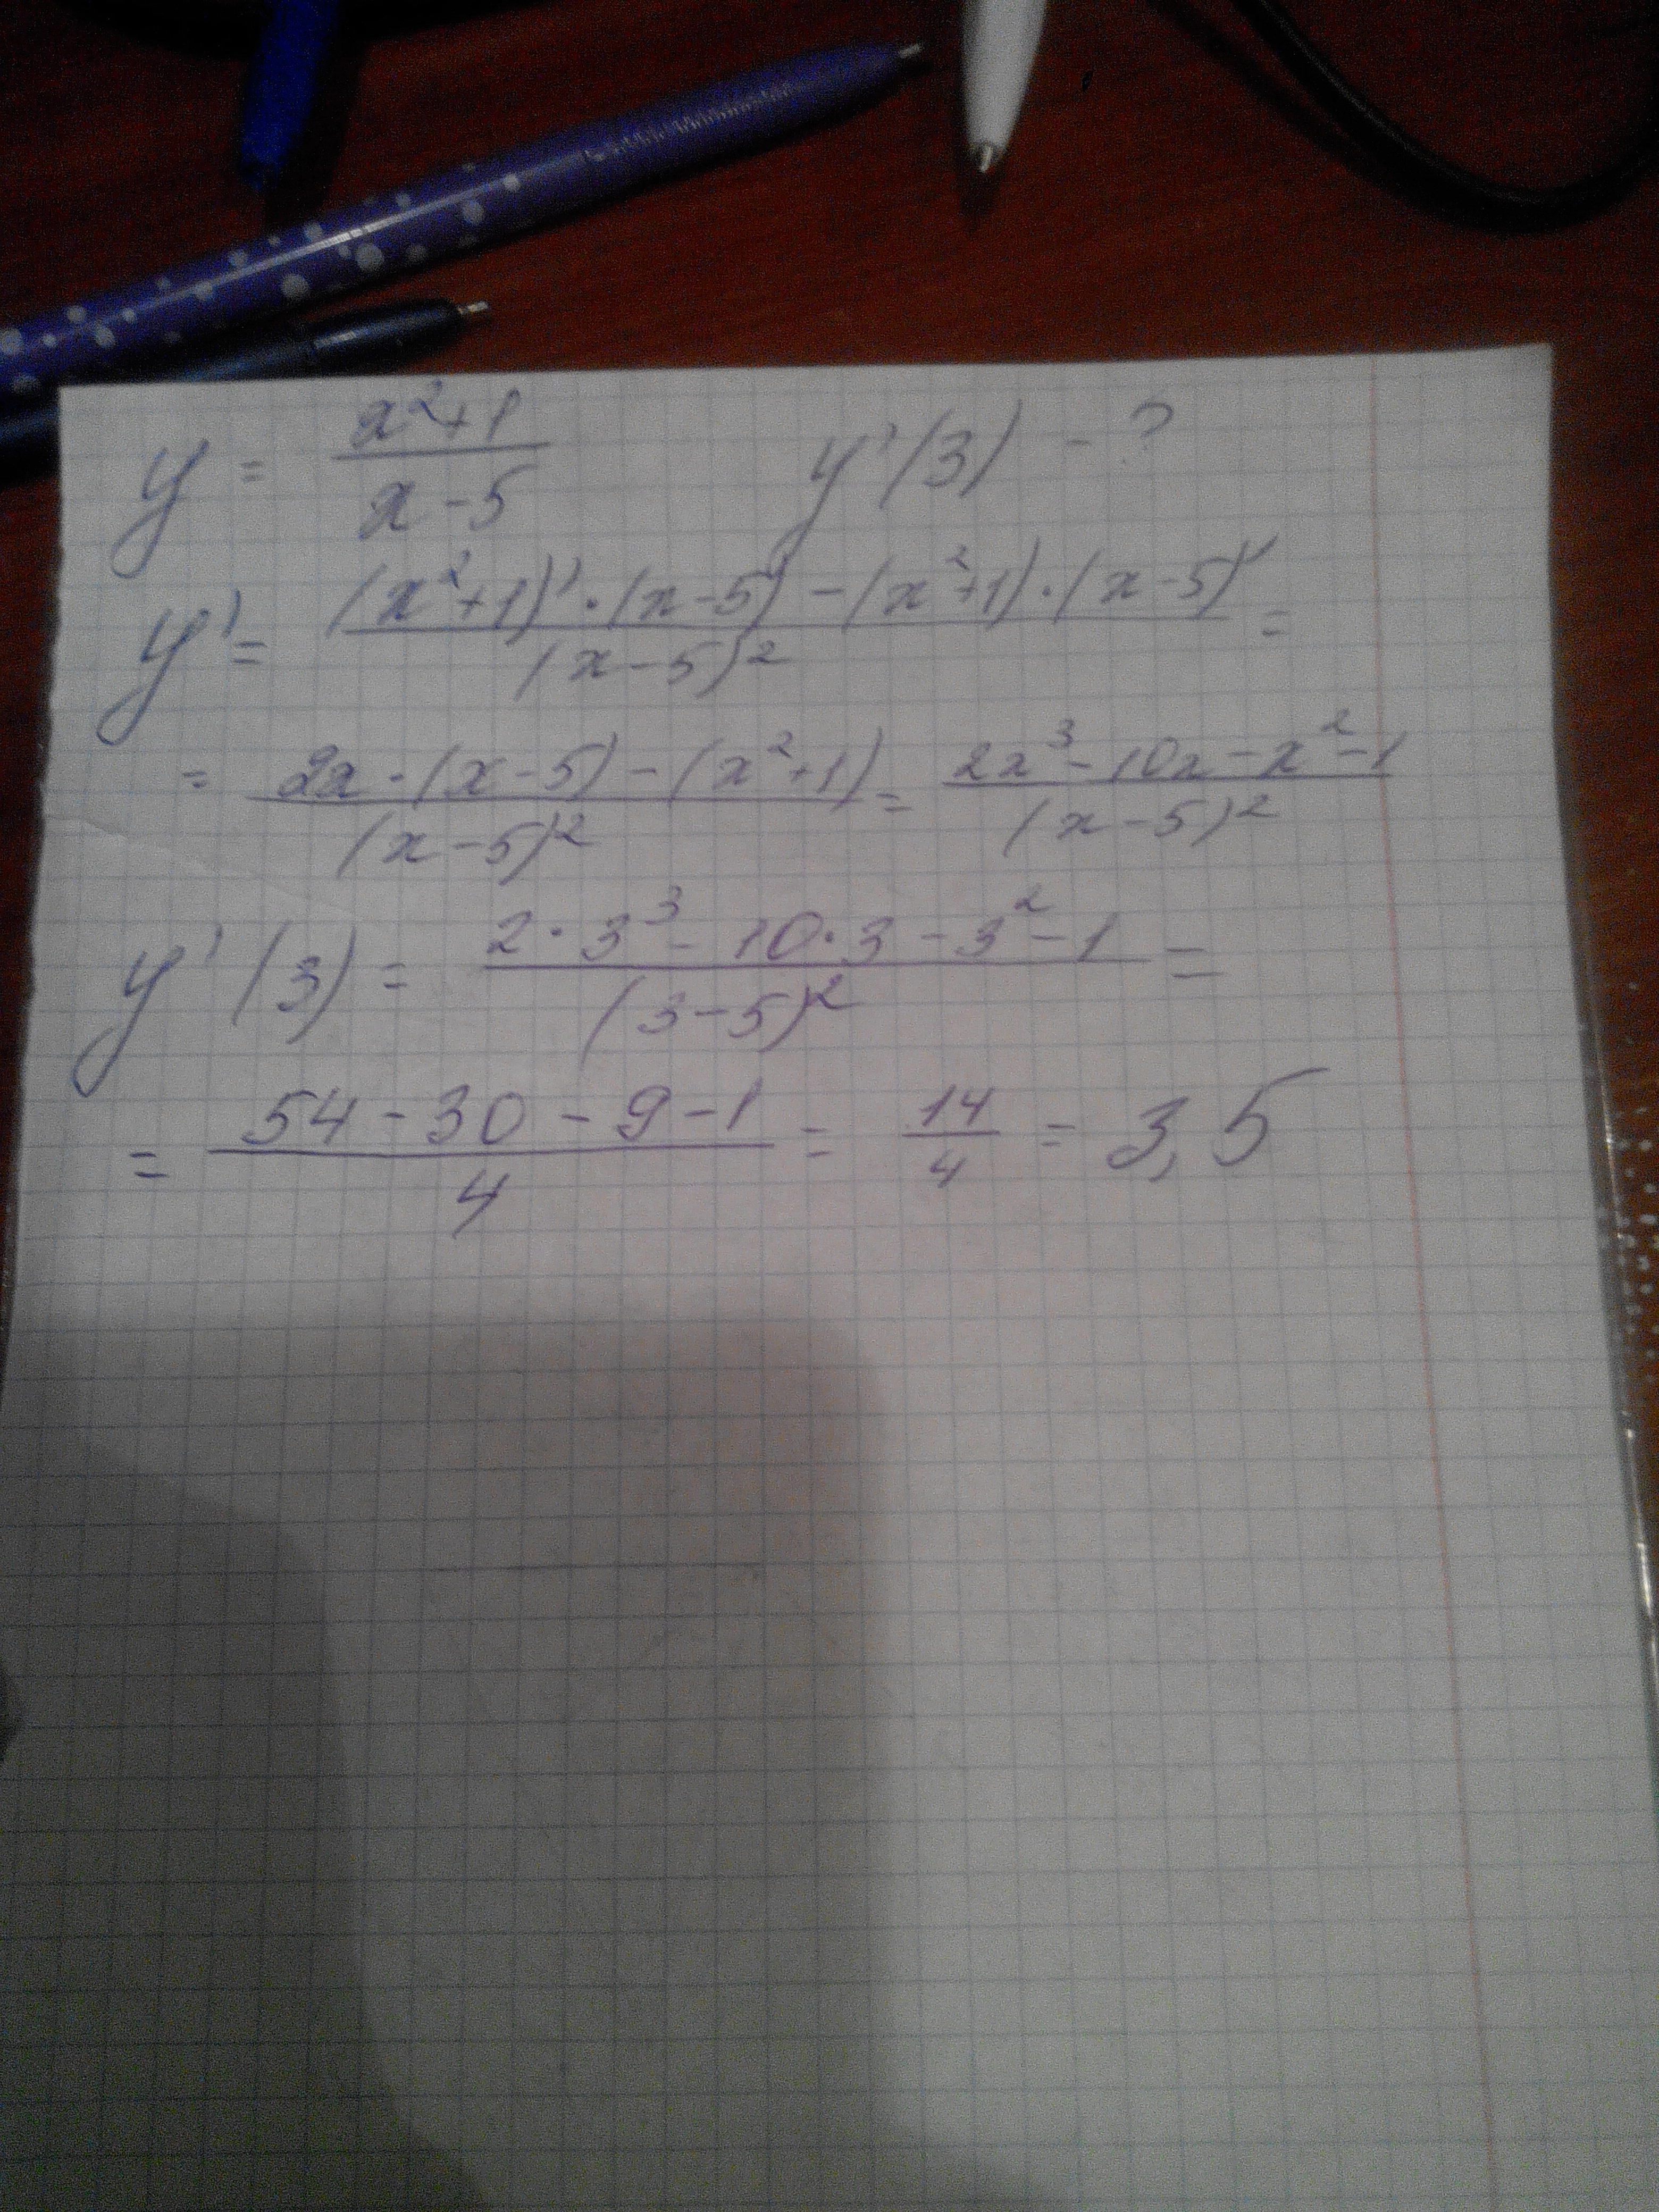 y = (x²+1)/(x-5) y'(3) - ?
y' = ((x²+1)'·(x-5) - (x²+1)·(x-5)')/(x-5)² =
= (2x·(x-5) - (x²+1))/(x-5)² = (2x³-10x-x²-1)/(x-5)²
y'(3) = (2·3³ - 10·3 - 3² - 1)/(3-5)² =
= (54-30-9-1)/4 = 14/4 = 3,5